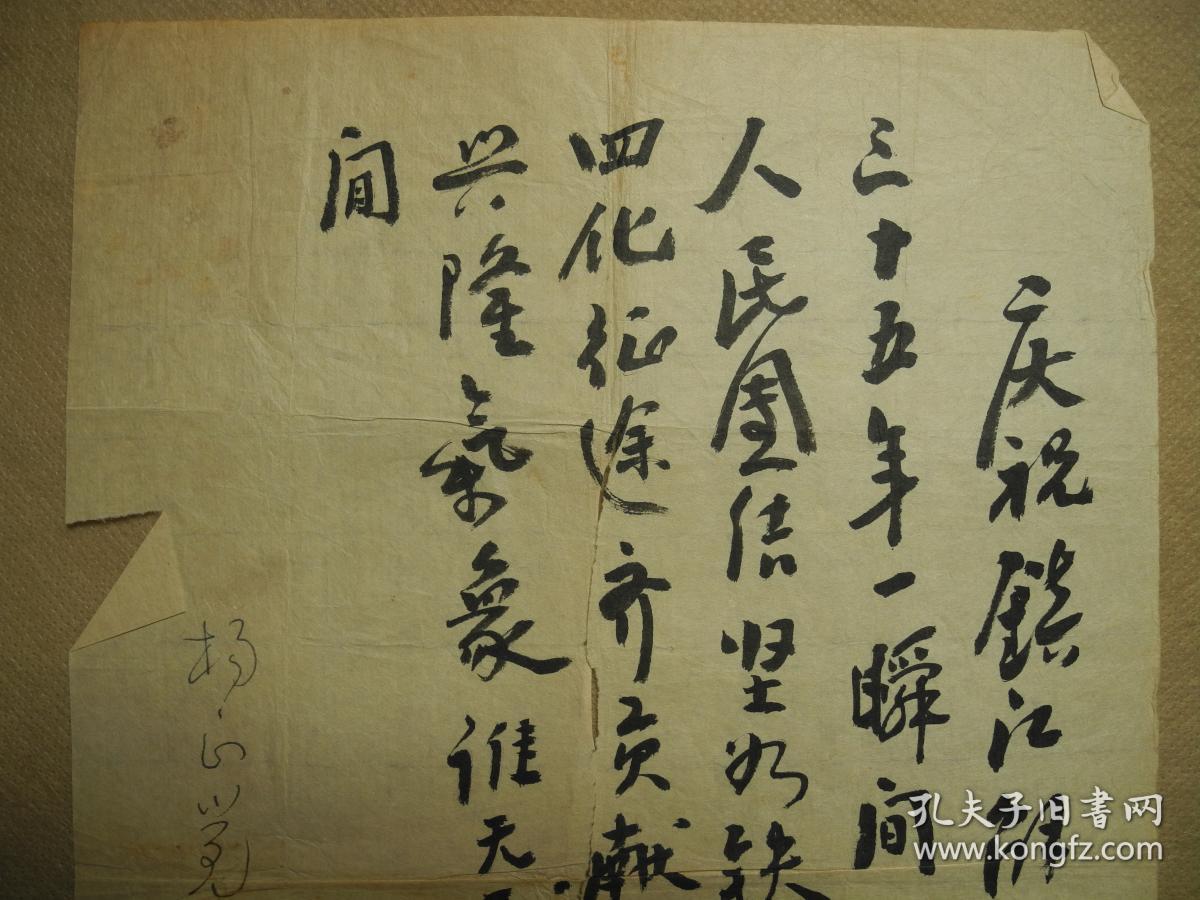 庆祝镇江解
三十五年一瞬间
人民团结坚如铁
四化征途齐贡献
兴隆气象谁无
间
杨
孔夫子旧书网
www.kongfz.com